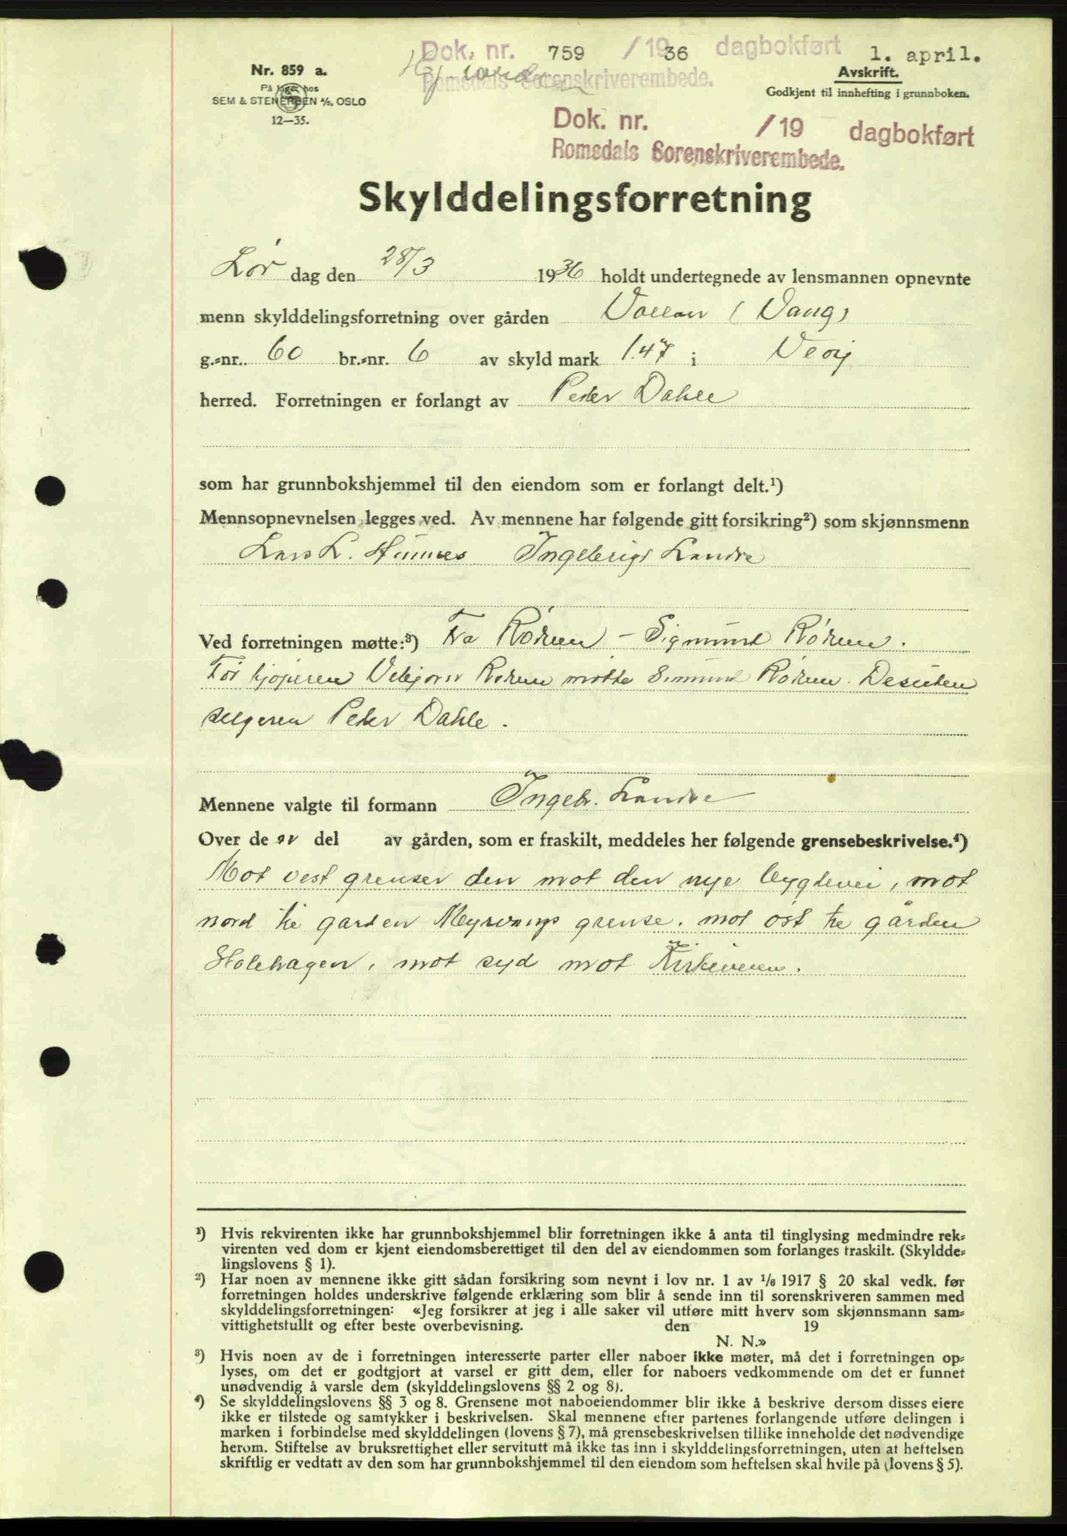 Dok. nr. 759 / 1936 dagbokført 1. april.
Romsdals Sorenskriverembede.
Nr. 859 a.
På lager hos
SEM & STENERSEN A/S, OSLO
12—35.
Avskrift.
Godkjent til innhefting i grunnboken.
Dok. nr. /19 dagbokført
Romsdals Sorenskriverembede.
Skylddelingsforretning
Lør dag den 28/3 1936 holdt undertegnede av lensmannen opnevnte
menn skylddelingsforretning over gården Vollan (Vaug)
g.-nr. 60 br.-nr. 6 av skyld mark 1.47 i Veøy
herred. Forretningen er forlangt av Peder Dahle
som har grunnbokshjemmel til den eiendom som er forlangt delt.¹)
Mennsopnevnelsen legges ved. Av mennene har følgende gitt forsikring²) som skjønnsmenn
Lars L. Hunnes Ingebrigt Landre
Ved forretningen møtte:³) Fra Rødven – Sigmund Rødven.
For kjøperen Vebjørn Rødven møtte Simund Rødven. Desuten
selgeren Peder Dahle.
Mennene valgte til formann Ingebr. Landre
Over de n del av gården, som er fraskilt, meddeles her følgende grensebeskrivelse.⁴)
Mot vest grenser den mot den nye bygdevei, mot
nord til garden Myrvangs grense. mot øst til gården
Holehagen, mot syd mot Kirkeveien.
¹) Hvis rekvirenten ikke har grunnbokshjemmel blir forretningen ikke å anta til tinglysing medmindre rek-
virenten ved dom er kjent eiendomsberettiget til den del av eiendommen som forlanges fraskilt. (Skyldde-
lingslovens § 1).
²) Har noen av mennene ikke gitt sådan forsikring som nevnt i lov nr. 1 av 1/6 1917 § 20 skal vedk. før
forretningen holdes underskrive følgende erklæring som blir å sende inn til sorenskriveren sammen med
skylddelingsforretningen: «Jeg forsikrer at jeg i alle saker vil utføre mitt hverv som skjønnsmann sam-
vittighetsfullt og efter beste overbevisning. den 19
N. N.»
³) Hvis noen av de i forretningen interesserte parter eller naboer ikke møter, må det i forretningen op-
lyses, om det er godtgjort at varsel er gitt dem, eller for naboers vedkommende om det er funnet
unødvendig å varsle dem (skylddelingslovens §§ 2 og 8).
⁴) Se skylddelingslovens §§ 3 og 8. Grensene mot naboeiendommer blir ikke å beskrive dersom disses eiere
ikke er tilstede og samtykker i beskrivelsen. Skal mennene efter partenes forlangende utføre delingen i
marken i forbindelse med skylddelingen (lovens § 7), må grensebeskrivelsen tillike inneholde det nødvendige
herom. Stiftelse av bruksrettighet eller servitutt må ikke tas inn i skylddelingsforretningen, uten at heftelsen
skriftlig er vedtatt av den som har grunnbokshjemmel til den eiendom som heftelsen skal hvile på (lovens § 5).